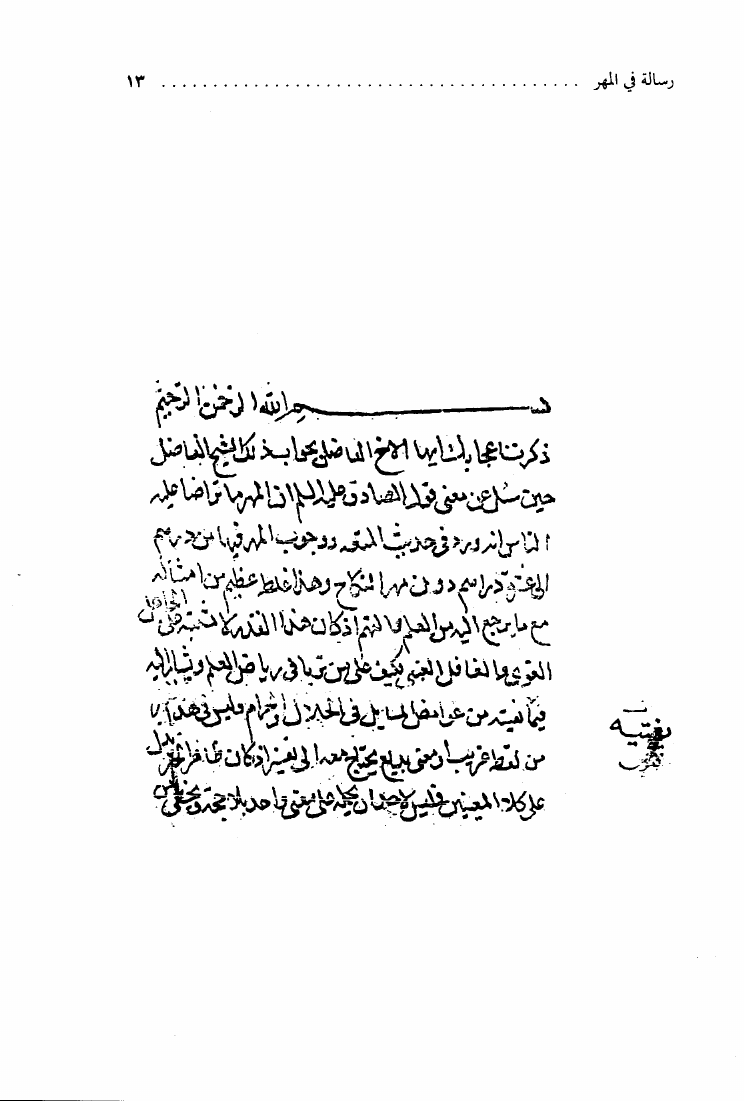 رسالة في المهر ........................................ ١٣
بسم الله الرحمن الرحيم
ذكرت اعجابك ايها الاخ الفاضل بجواب ذلك الشيخ الفاضل
حين سئل عن معنى قول الصادق عليه السلم ان المهر ما تراضا عليه
الناس انه ورد في حديث المتعه ووجوب المهر فيها من درهم
الى دراهم دون مهر النكاح وهذا غلط عظيم من امثاله
مع ما يرجع اليه من العلم والفهم اذ كان هذا القدر لا يشتبه على الجاهل
الغوي والغافل الغبي فكيف على من تربا في رياض العلم ويشار اليه
فيما يفتيه من غوامض المسايل في الحلال والحرام وليس في هذا
من لفظ غريب او معنى بديع يحتاج معه الى تفسير اذ كان ظاهر الخبر يدل
على كلا المعنيين فليس لاحد ان يحيله على معنى واحد بلا حجة
يفتيه